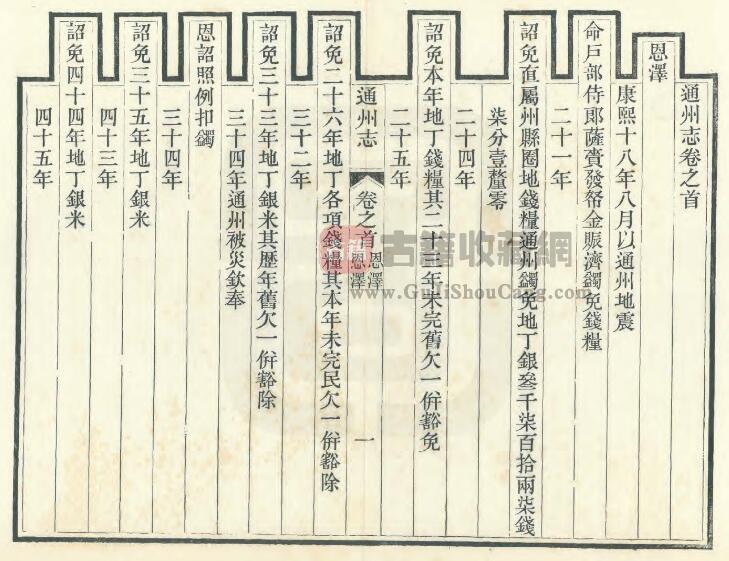 通州志卷之首
恩澤
康熙十八年八月以通州地震
命戶部侍郎薩賚發帑金賑濟蠲免錢糧
二十一年
詔免直屬州縣圈地錢糧通州蠲免地丁銀叄千柒百拾兩柒錢
柒分壹釐零
二十四年
詔免本年地丁錢糧其二十三年未完舊欠一倂豁免
二十五年
通州志 卷之首 恩澤 恩澤 一
詔免二十六年地丁各項錢糧其本年未完民欠一倂豁除
三十二年
詔免三十三年地丁銀米其歷年舊欠一倂豁除
三十四年通州被災欽奉
恩詔照例扣蠲
三十四年
詔免三十五年地丁銀米
四十三年
詔免四十四年地丁銀米
四十五年
古籍收藏網
www.GuJiShouCang.com